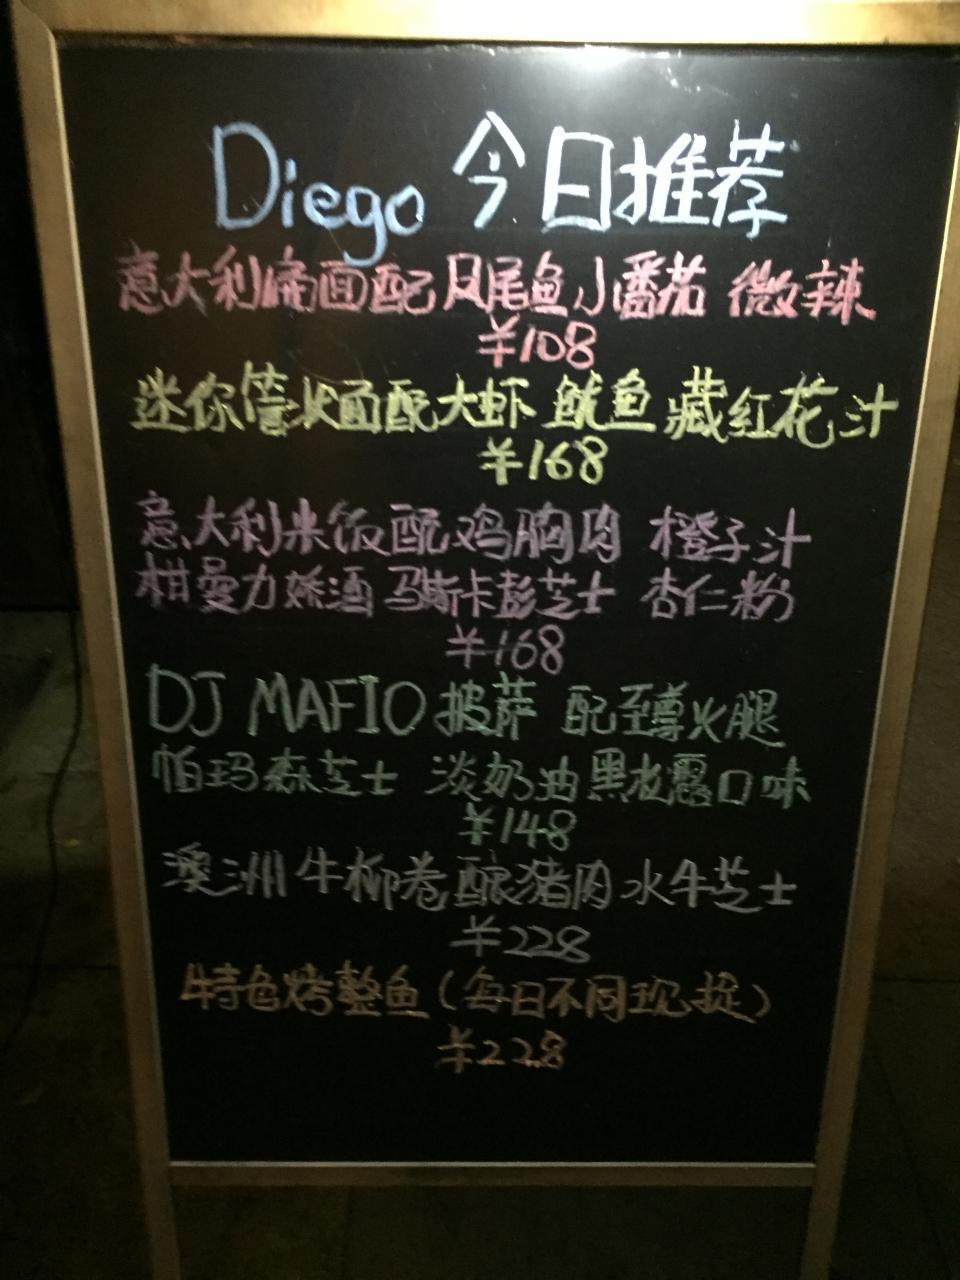 Diego 今日推荐
意大利扁面配凤尾鱼小番茄 微辣
¥108
迷你管状面配大虾 鱿鱼 藏红花汁
¥168
意大利米饭配鸡胸肉 橙子汁
柑曼力娇酒 马斯卡彭芝士 杏仁粉
¥168
DJ MAFIO 披萨 配至尊火腿
帕玛森芝士 淡奶油黑松露口味
¥148
澳洲牛柳卷酿猪肉水牛芝士
¥228
特色烤整鱼(每日不同现捉)
¥228